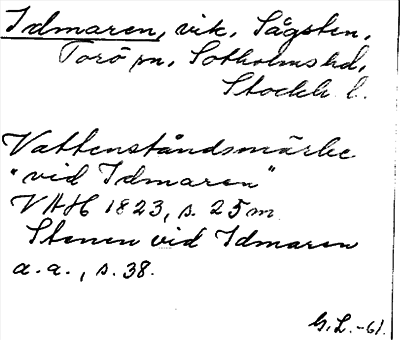 Idmaren, vik, Sågsten,
Torö sn, Sotholms hd,
Stockh. l.
Vattenståndsmärke
"vid Idmaren"
VAH 1823, s. 25 m
Stenen vid Idmaren
a.a., s. 38.
G.L.-61.